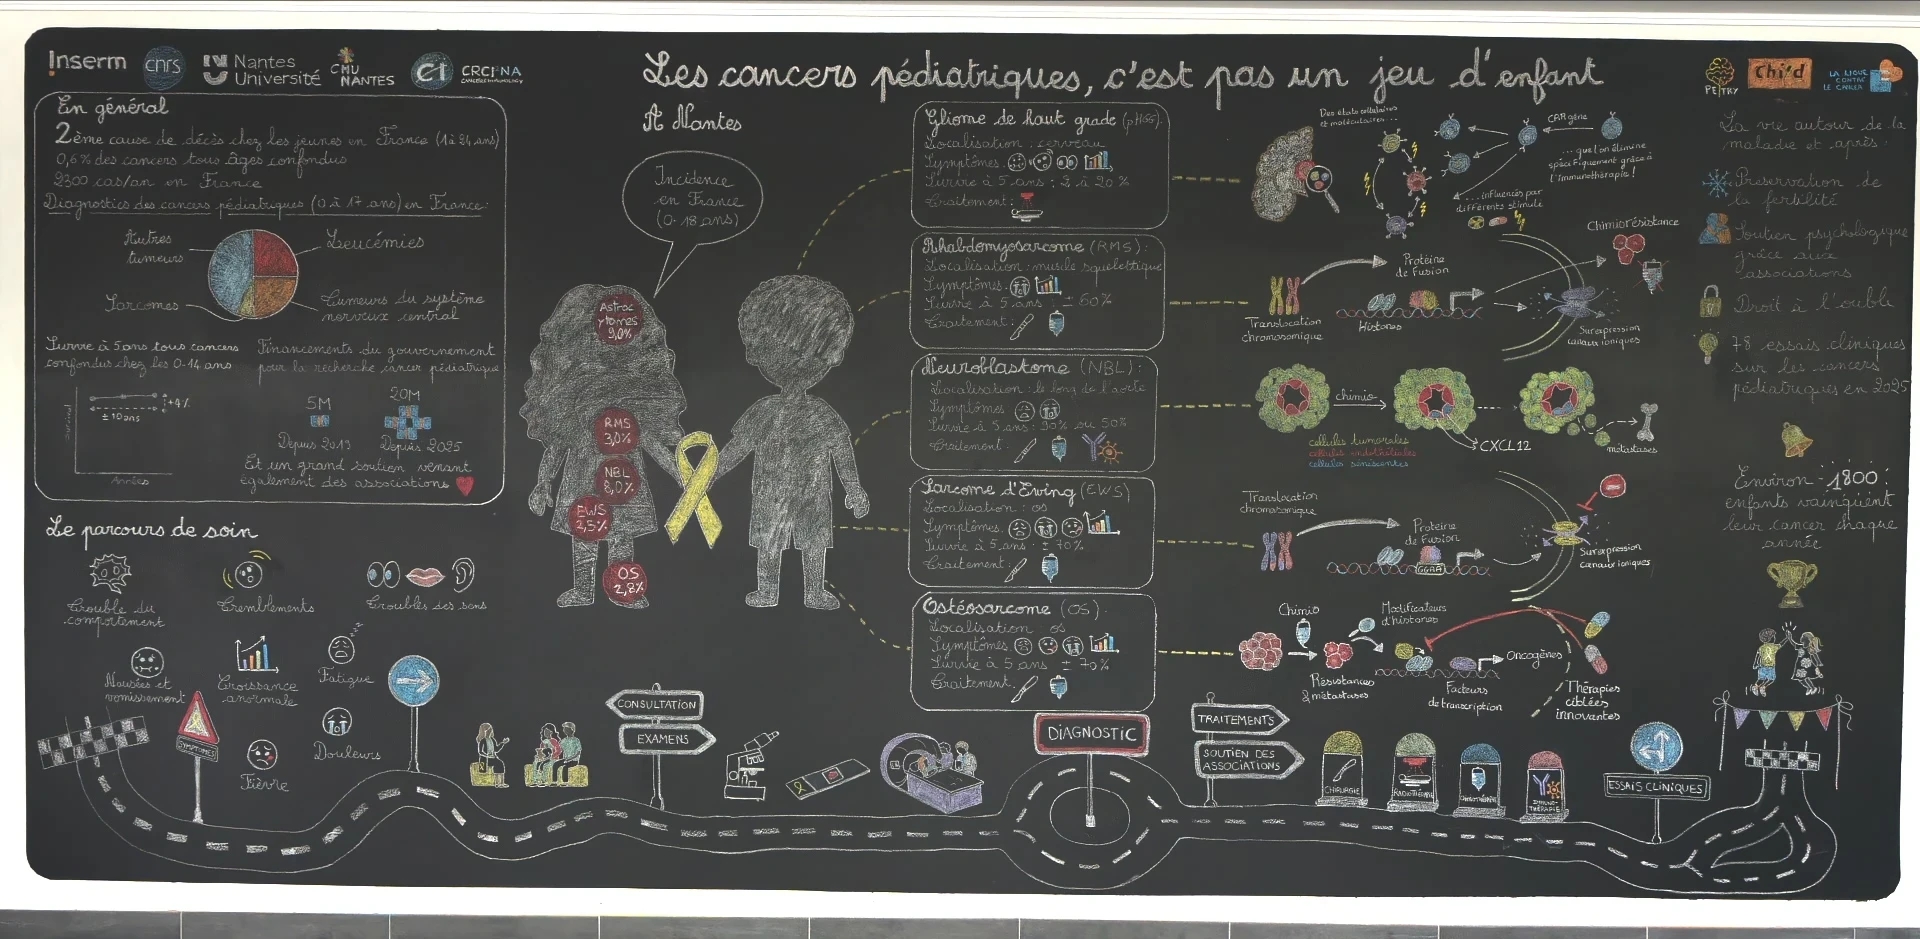 Inserm
cnrs
Nantes
Université
CHU
NANTES
CRCI²NA
Les cancers pédiatriques, c'est pas un jeu d'enfant
PETRY
Chi'd
LA LIGUE
CONTRE
LE CANCER
En général
2ème cause de décès chez les jeunes en France (1 à 24 ans)
0,6% des cancers tous âges confondus
2300 cas/an en France
Diagnostics des cancers pédiatriques (0 à 17 ans) en France:
Autres
tumeurs
Leucémies
Sarcomes
Tumeurs du système
nerveux central
Survie à 5 ans tous cancers
confondus chez les 0-14 ans
+4%
± 10 ans
Années
Financements du gouvernement
pour la recherche cancer pédiatrique
5M
Depuis 2019
20M
Depuis 2025
Et un grand soutien venant
également des associations
A Nantes
Incidence
en France
(0-18 ans)
Astroc
ytomes
9,0%
RMS
3,0%
NBL
8,0%
EWS
2,5%
OS
2,8%
Gliome de haut grade (pHGG):
Localisation : cerveau
Symptômes:
Survie à 5 ans : 2 à 20 %
Traitement:
Rhabdomyosarcome (RMS):
Localisation : muscle squelettique
Symptômes:
Survie à 5 ans : ± 60%
Traitement:
Neuroblastome (NBL):
Localisation : le long de l'aorte
Symptômes
Survie à 5 ans : 90% ou 50%
Traitement:
Sarcome d'Ewing (EWS)
Localisation : os
Symptômes:
Survie à 5 ans : ± 70%
Traitement:
Ostéosarcome (OS).
Localisation : os
Symptômes:
Survie à 5 ans ± 70%
Traitement.
Des états cellulaires
et moléculaires...
CAR gène
... que l'on élimine
spécifiquement grâce à
l'immunothérapie !
... influencés par
différents stimuli
Translocation
chromosomique
Protéine
de Fusion
Histones
Chimiorésistance
Surexpression
canaux ioniques
chimio
CXCL12
métastases
cellules tumorales
cellules endothéliales
cellules sénescentes
Translocation
chromosomique
Protéine
de Fusion
GGAA
Surexpression
canaux ioniques
Chimio
Résistances
& métastases
Modificateurs
d'histones
Oncogènes
Facteurs
de transcription
Thérapies
ciblées
innovantes
La vie autour de la
maladie et après:
Préservation de
la fertilité
Soutien psychologique
grâce aux
associations
Droit à l'oubli
78 essais cliniques
sur les cancers
pédiatriques en 2025
Environ 1800
enfants vainquient
leur cancer chaque
année
Le parcours de soin
Trouble du
comportement
Tremblements
Troubles des sens
Nausées et
vomissement
Croissance
anormale
Fatigue
Fièvre
Douleurs
SYMPTÔMES
CONSULTATION
EXAMENS
DIAGNOSTIC
TRAITEMENTS
SOUTIEN DES
ASSOCIATIONS
CHIRURGIE
RADIOTHÉRAPIE
CHIMIOTHÉRAPIE
IMMUNO-
THÉRAPIE
ESSAIS CLINIQUES